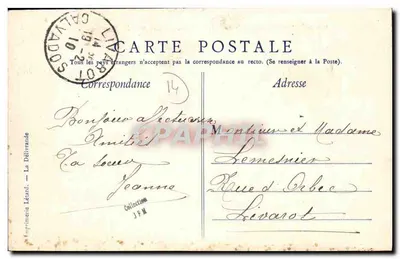 CARTE POSTALE
Tous les pays étrangers n'acceptent pas la correspondance au recto. (Se renseigner à la Poste).
Correspondance
Adresse
LIVAROT
CALVADOS
14
Bonjour
Amitiés
Ta soeur
Jeanne
Monsieur et Madame
Lemesnier
Rue d'Orbec
Livarot
Collection
Imprimerie Lézard. - La Délivrande